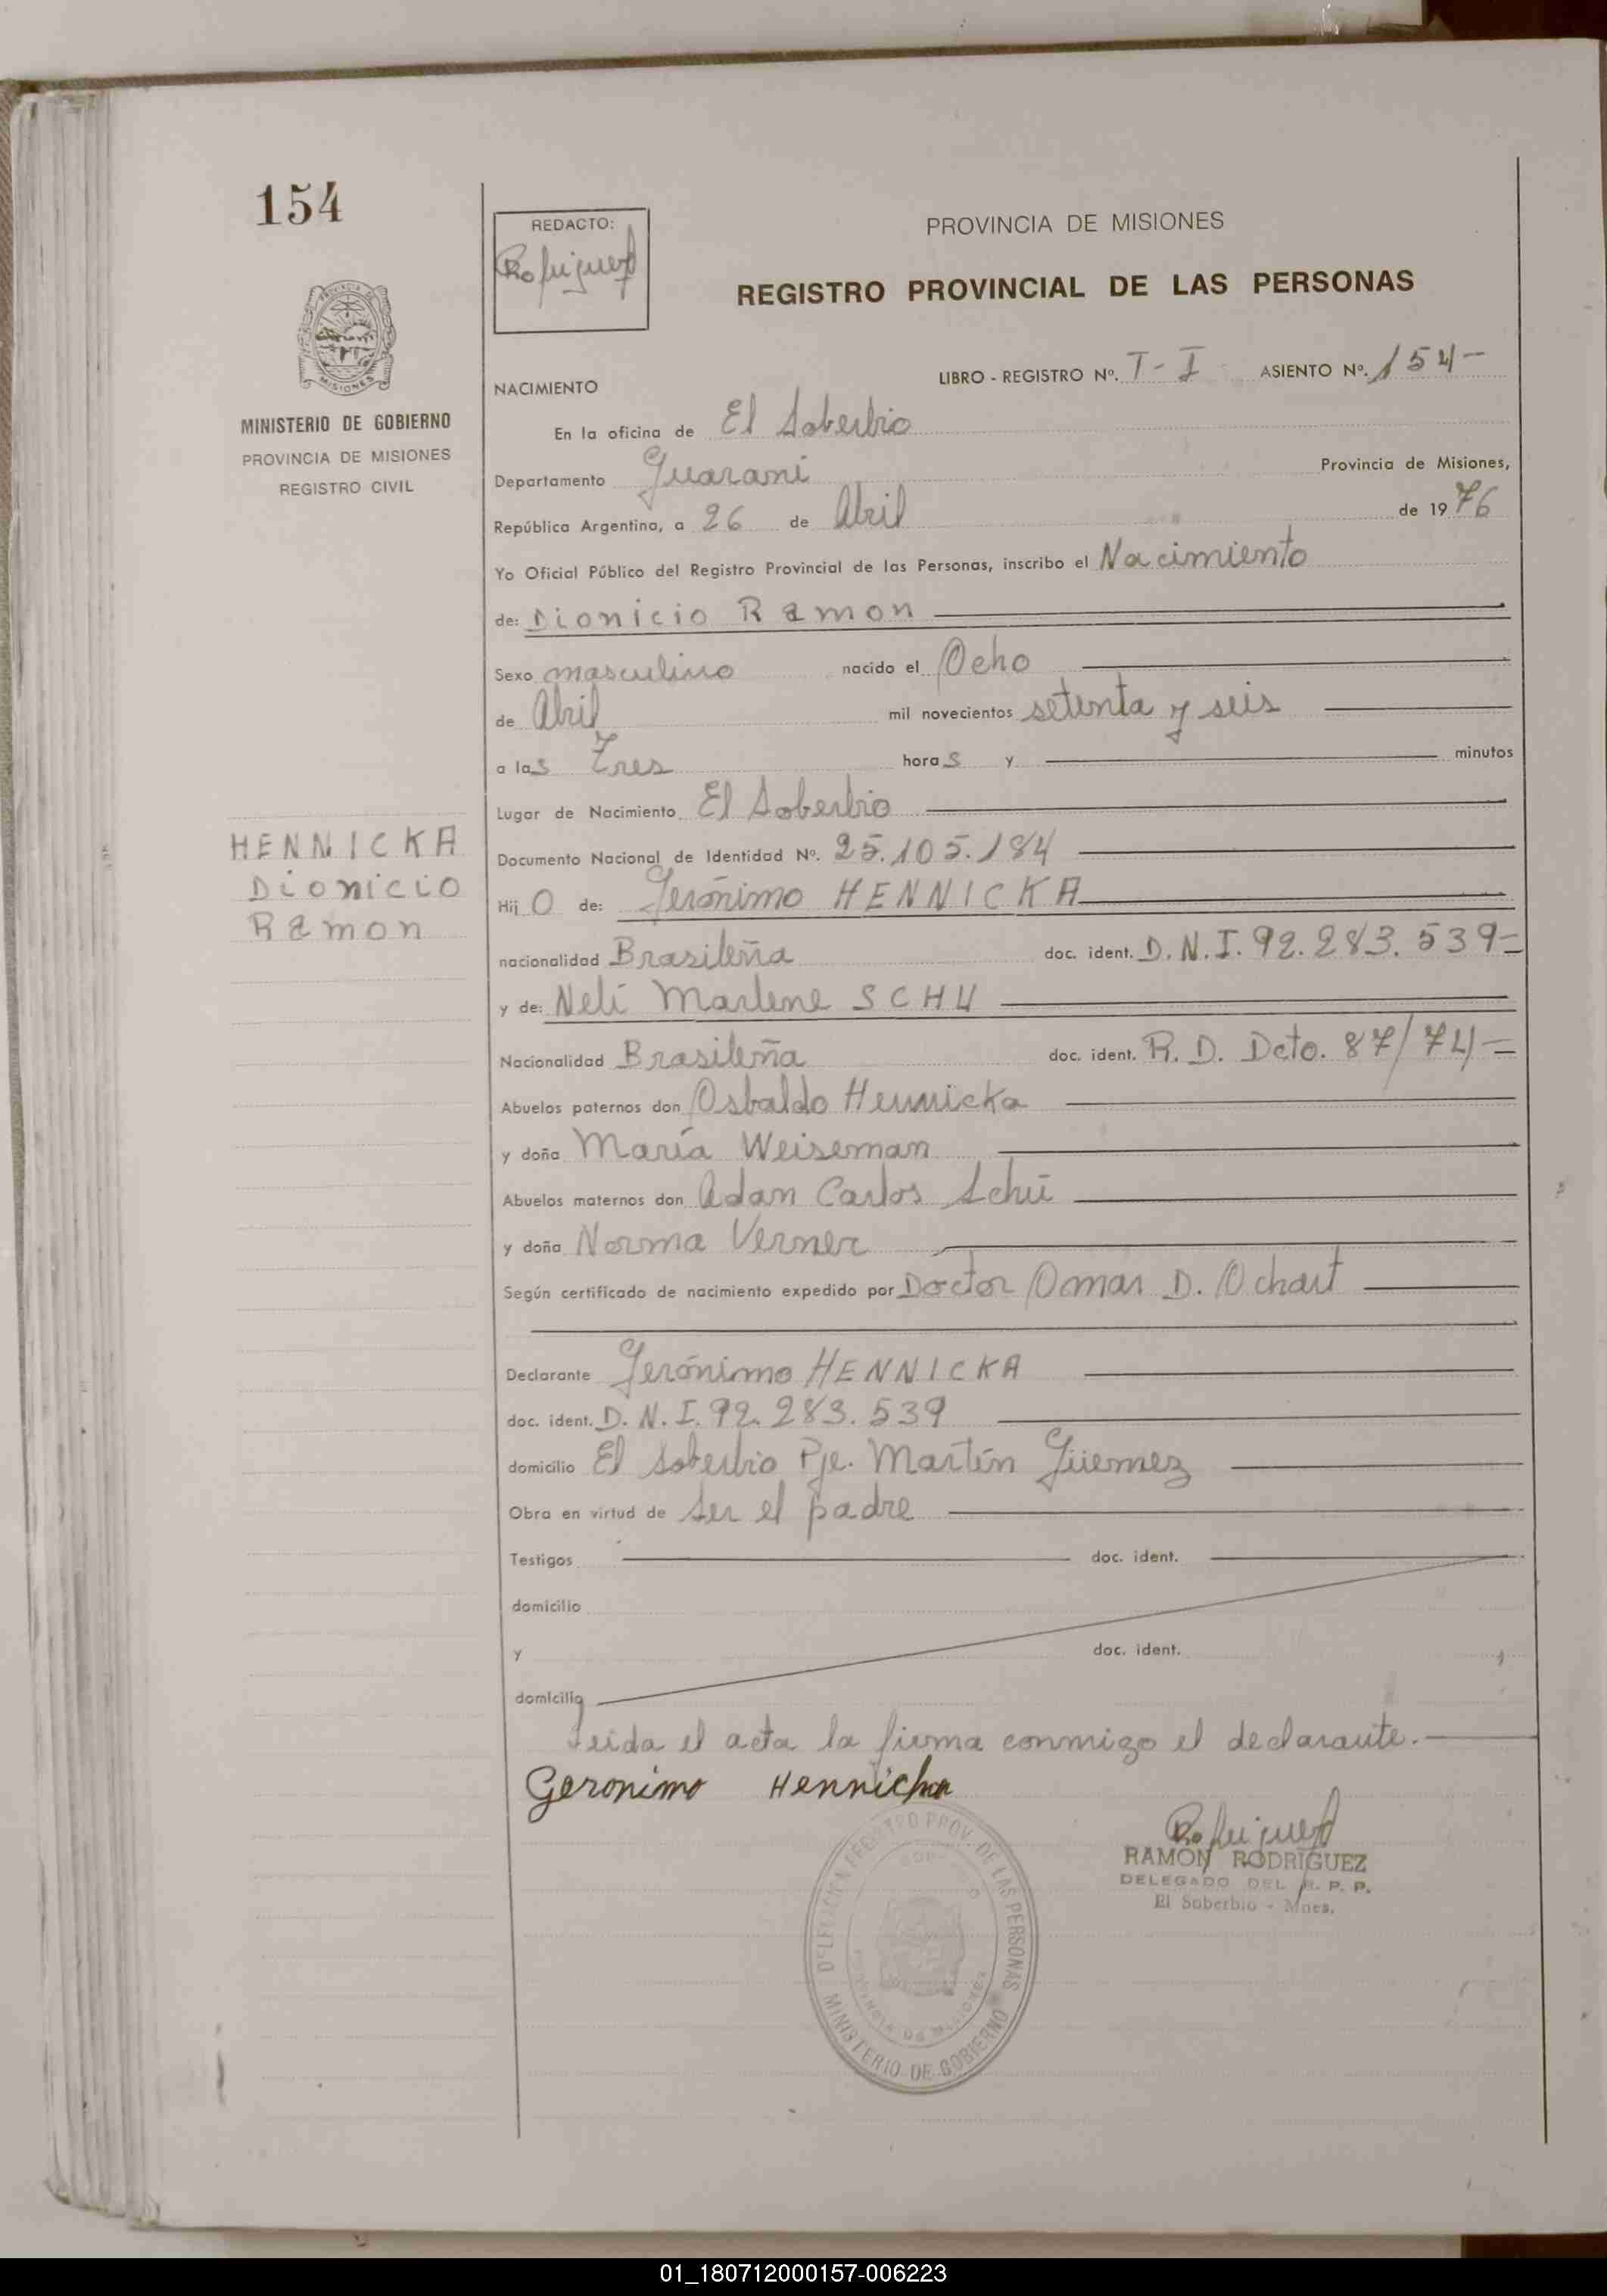 154
REDACTO:
Rodriguez
PROVINCIA DE MISIONES
REGISTRO PROVINCIAL DE LAS PERSONAS
PROVINCIA DE
MISIONES
MINISTERIO DE GOBIERNO
PROVINCIA DE MISIONES
REGISTRO CIVIL
NACIMIENTO
LIBRO - REGISTRO Nº. T - I ASIENTO Nº. 154 -
En la oficina de El Soberbio
Departamento Guarani Provincia de Misiones,
República Argentina, a 26 de Abril de 1976
Yo Oficial Público del Registro Provincial de las Personas, inscribo el Nacimiento
de: Dionicio Ramon
Sexo masculino nacido el Ocho
de Abril mil novecientos setenta y seis
a las Tres horas y minutos
Lugar de Nacimiento El Soberbio
HENNICKA
Dionicio
Ramon
Documento Nacional de Identidad Nº. 25.105.184
Hijo de: Jerónimo HENNICKA
nacionalidad Brasileña doc. ident. D.N.I. 92.283.539=
y de: Neli Marlene SCHU
Nacionalidad Brasileña doc. ident. R.D. Dcto. 87/74=
Abuelos paternos don Osbaldo Hennicka
y doña María Weiseman
Abuelos maternos don Adan Carlos Schú
y doña Norma Verner
Según certificado de nacimiento expedido por Doctor Omar D. Ochart
Declarante Jerónimo HENNICKA
doc. ident. D.N.I. 92.283.539
domicilio El Soberbio Pje. Martín Güemez
Obra en virtud de ser el padre
Testigos doc. ident.
domicilio
y doc. ident.
domicilio
Leida el acta la firma conmigo el declarante.
Geronimo Hennicka
Rodriguez
RAMON RODRIGUEZ
DELEGADO DEL R. P. P.
El Soberbio - Mnes.
PROV. DE LAS PERSONAS
MINISTERIO DE GOBIERNO
01_180712000157-006223